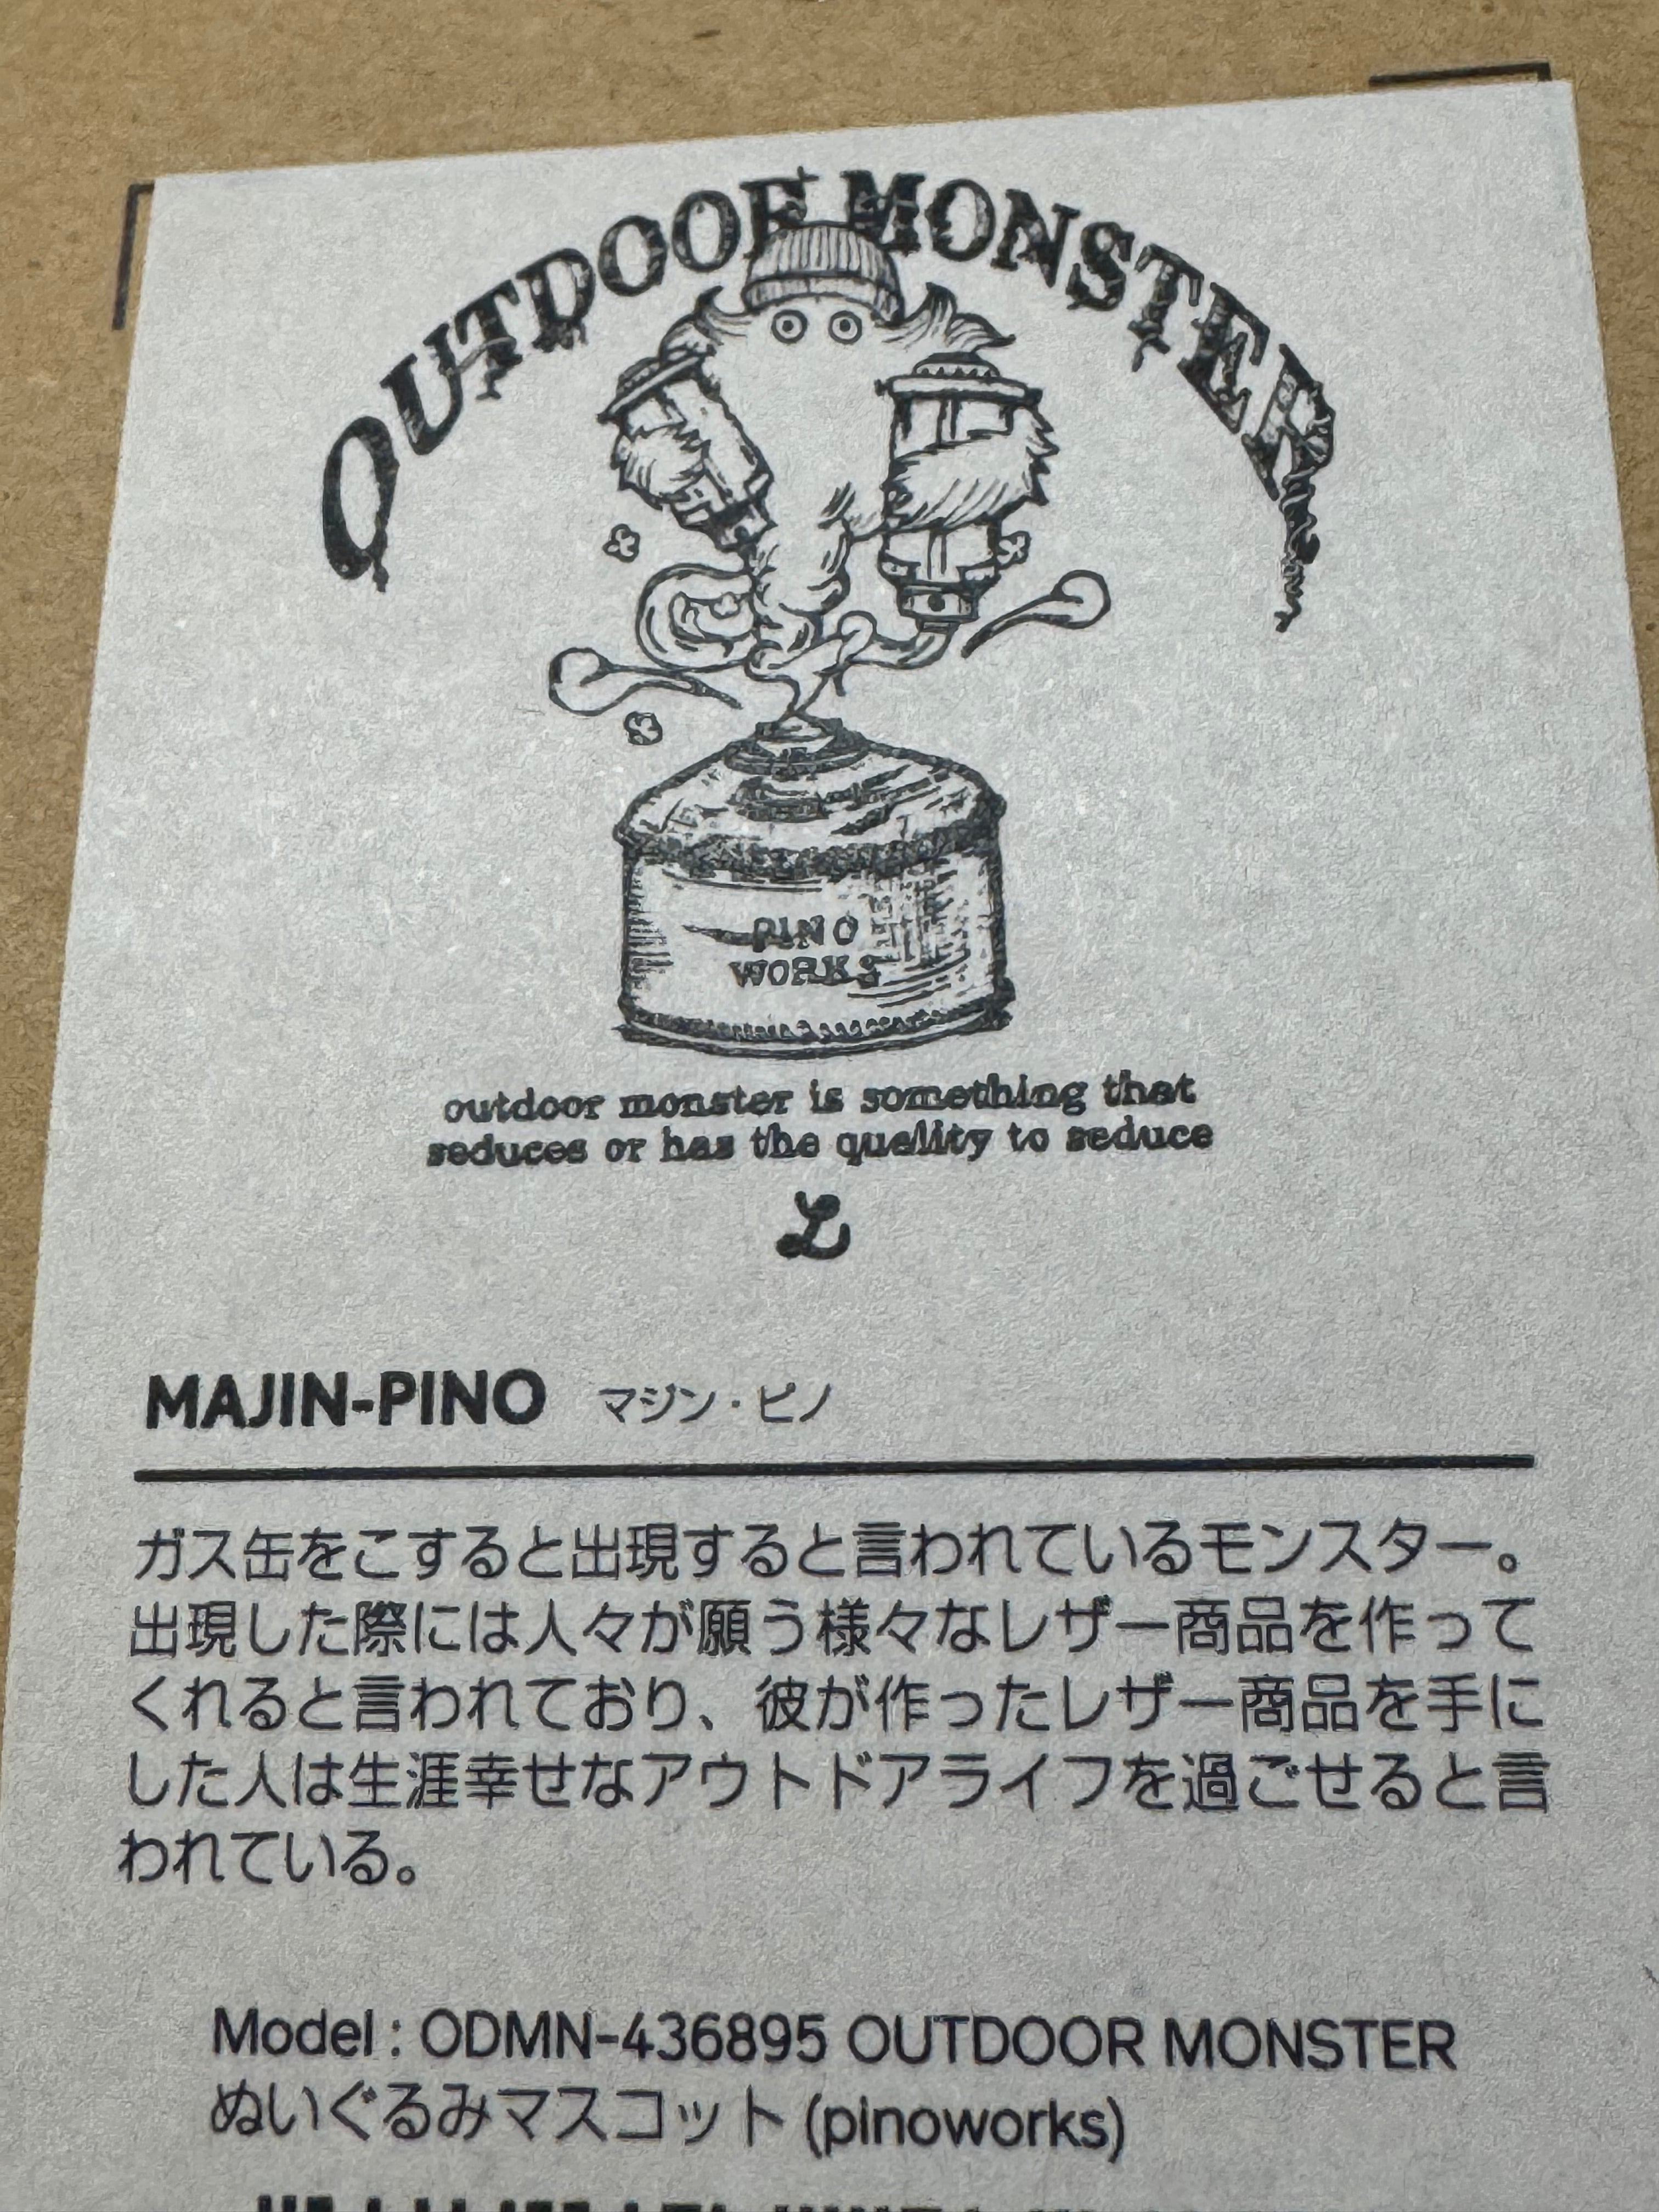 OUTDOOR MONSTER
PINO
WORKS
outdoor monster is something that
seduces or has the quality to seduce
L
MAJIN-PINO マジン・ピノ
ガス缶をこすると出現すると言われているモンスター。
出現した際には人々が願う様々なレザー商品を作って
くれると言われており、彼が作ったレザー商品を手に
した人は生涯幸せなアウトドアライフを過ごせると言
われている。
Model : ODMN-436895 OUTDOOR MONSTER
ぬいぐるみマスコット (pinoworks)